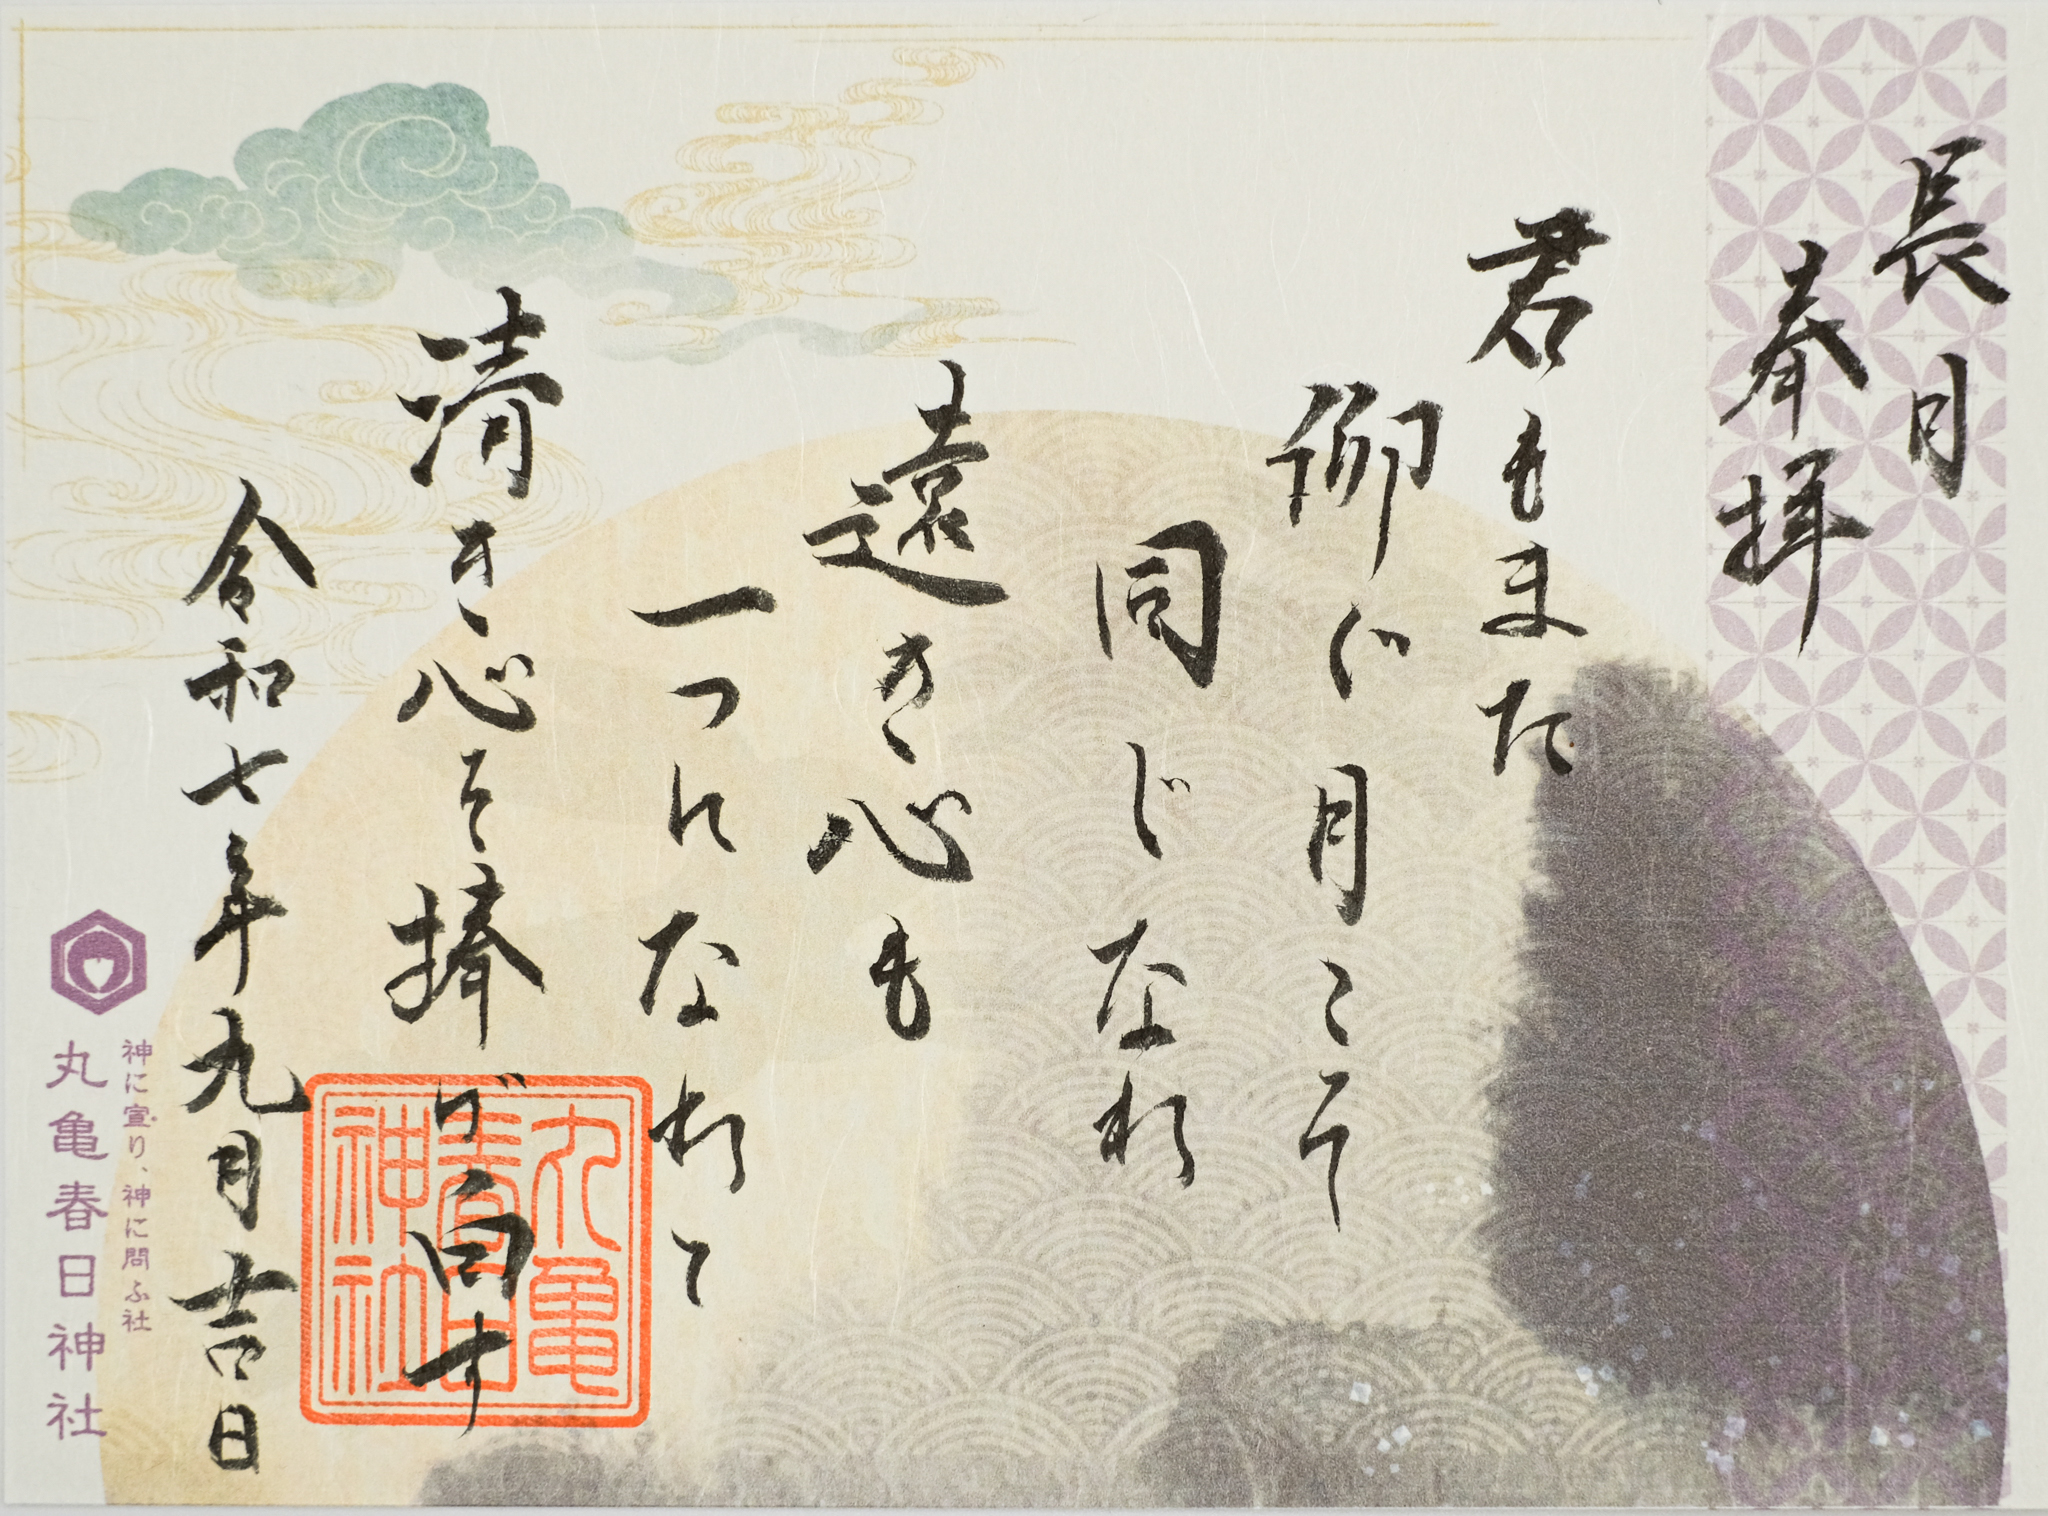 長月
奉拝
君もまた
仰ぐ月こそ
同じなれ
遠き心も
一つになりて
清き心を捧げ白す
令和七年九月吉日
丸亀春日神社
神に宣り、神に問ふ社
丸亀春日神社